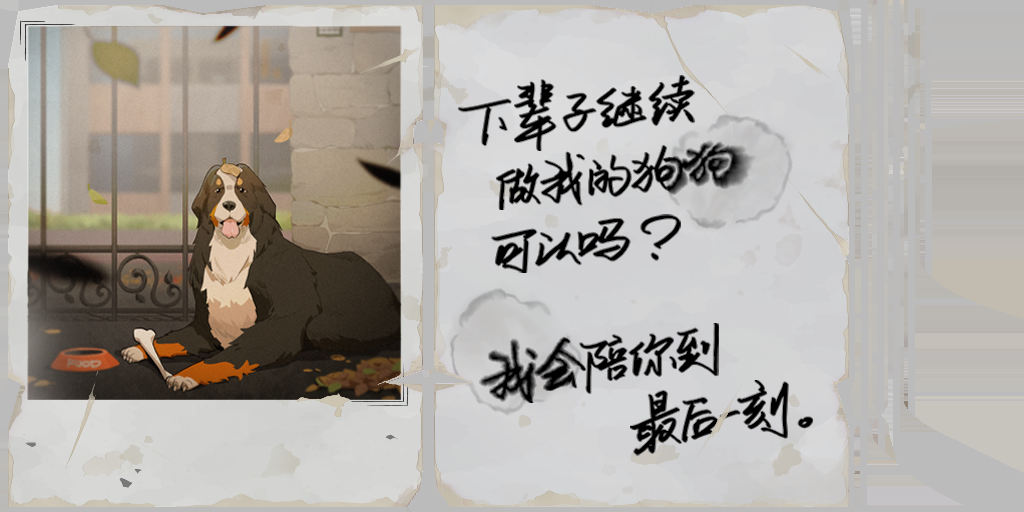 FOOD
下辈子继续
做我的狗狗
可以吗？
我会陪你到
最后一刻。